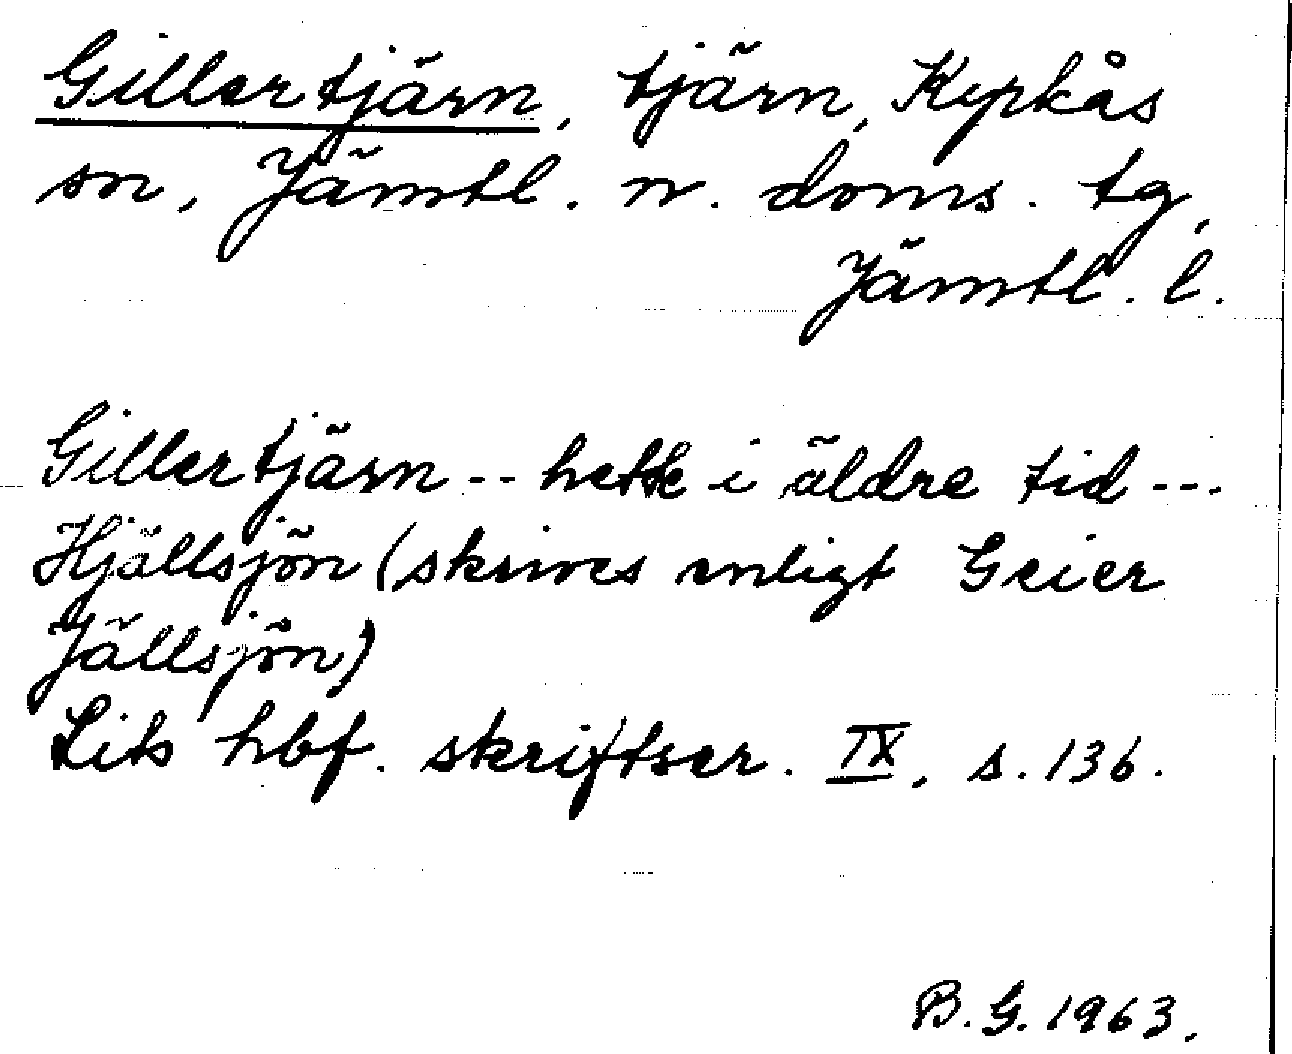 Gillertjärn, tjärn, Kyrkås
sn, Jämtl. n. doms. tg,
Jämtl. l.
Gillertjärn -- hette i äldre tid ---
Hjällsjön (skrives enligt Geier
Jällsjön)
Lits hbf. skriftser. IX, s. 136.
B. G. 1963.